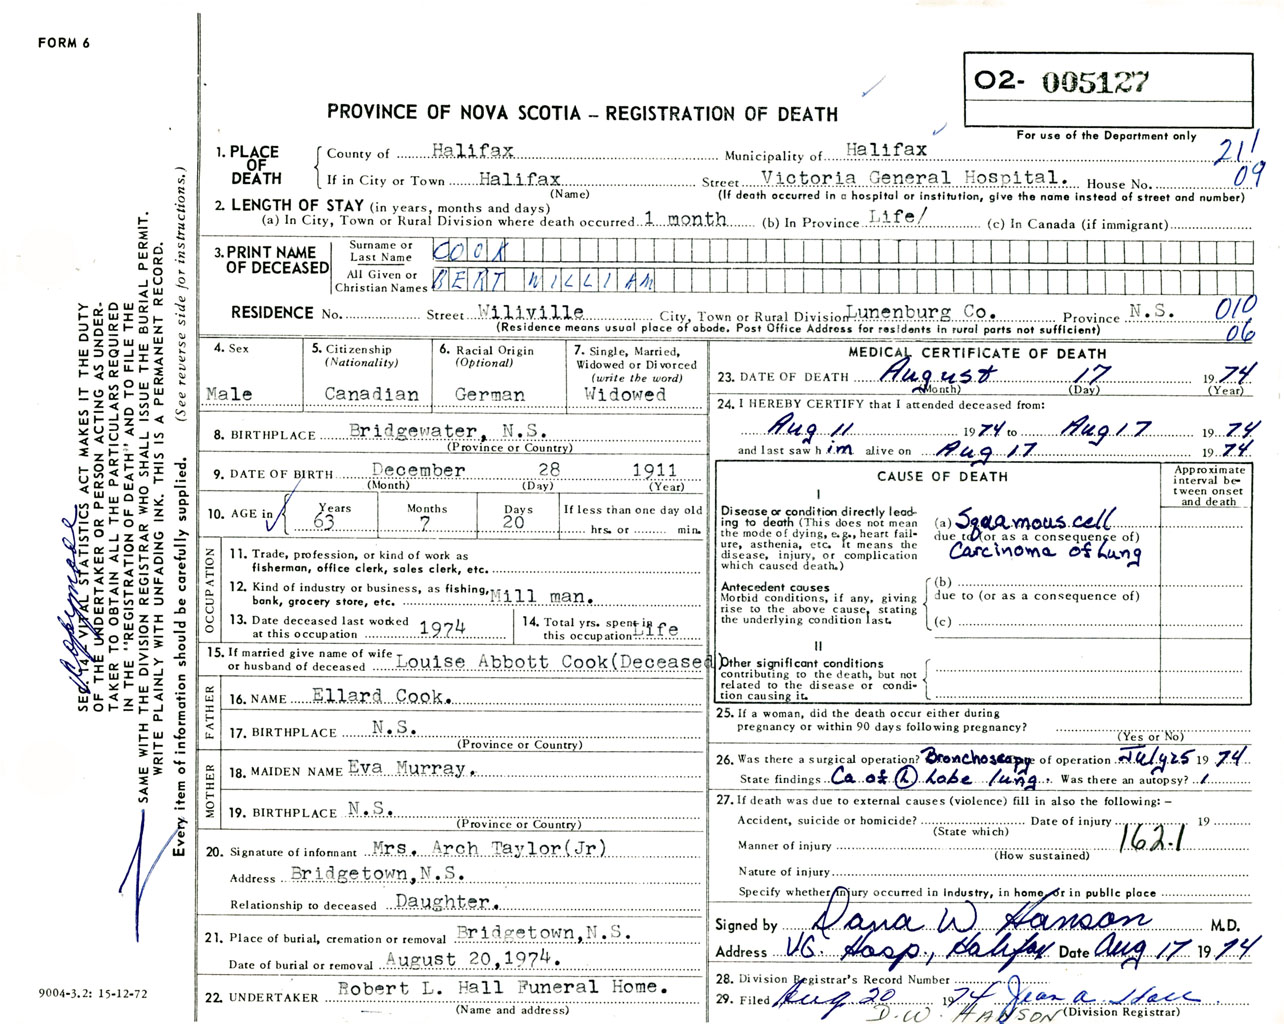 FORM 6
O2- 005127
PROVINCE OF NOVA SCOTIA – REGISTRATION OF DEATH
For use of the Department only
1. PLACE OF DEATH
County of Halifax Municipality of Halifax 211
If in City or Town Halifax Street Victoria General Hospital. House No. 09
(Name) (If death occurred in a hospital or institution, give the name instead of street and number)
2. LENGTH OF STAY (in years, months and days)
(a) In City, Town or Rural Division where death occurred 1 month (b) In Province Life/ (c) In Canada (if immigrant)
3. PRINT NAME OF DECEASED
Surname or Last Name COOK
All Given or Christian Names BERT WILLIAM
RESIDENCE No. Street Wiliville City, Town or Rural Division Lunenburg Co. Province N.S. 010
(Residence means usual place of abode. Post Office Address for residents in rural parts not sufficient) 06
4. Sex
Male
5. Citizenship
(Nationality)
Canadian
6. Racial Origin
(Optional)
German
7. Single, Married,
Widowed or Divorced
(write the word)
Widowed
8. BIRTHPLACE Bridgewater, N.S.
(Province or Country)
9. DATE OF BIRTH December 28 1911
(Month) (Day) (Year)
10. AGE in
Years Months Days If less than one day old
63 7 20 hrs. or min.
OCCUPATION
11. Trade, profession, or kind of work as
fisherman, office clerk, sales clerk, etc.
12. Kind of industry or business, as fishing,
bank, grocery store, etc. Mill man.
13. Date deceased last worked
at this occupation 1974
14. Total yrs. spent in
this occupation Life
15. If married give name of wife
or husband of deceased Louise Abbott Cook(Deceased)
FATHER
16. NAME Ellard Cook.
17. BIRTHPLACE N.S.
(Province or Country)
MOTHER
18. MAIDEN NAME Eva Murray.
19. BIRTHPLACE N.S.
(Province or Country)
20. Signature of informant Mrs. Arch Taylor(Jr)
Address Bridgetown,N.S.
Relationship to deceased Daughter.
21. Place of burial, cremation or removal Bridgetown,N.S.
Date of burial or removal August 20,1974.
22. UNDERTAKER Robert L. Hall Funeral Home.
(Name and address)
MEDICAL CERTIFICATE OF DEATH
23. DATE OF DEATH August 17 1974
(Month) (Day) (Year)
24. I HEREBY CERTIFY that I attended deceased from:
Aug 11 1974 to Aug 17 1974
and last saw him alive on Aug 17 1974
CAUSE OF DEATH
Approximate
interval be-
tween onset
and death
I
Disease or condition directly lead-
ing to death (This does not mean
the mode of dying, e.g., heart fail-
ure, asthenia, etc. It means the
disease, injury, or complication
which caused death.)
(a) Squamous cell
due to (or as a consequence of)
Carcinoma of Lung
Antecedent causes
Morbid conditions, if any, giving
rise to the above cause, stating
the underlying condition last.
(b)
due to (or as a consequence of)
(c)
II
Other significant conditions
contributing to the death, but not
related to the disease or condi-
tion causing it.
25. If a woman, did the death occur either during
pregnancy or within 90 days following pregnancy?
(Yes or No)
26. Was there a surgical operation? Bronchoscopy of operation July 25 1974
State findings Ca of (L) Lobe lung. Was there an autopsy?
27. If death was due to external causes (violence) fill in also the following: –
Accident, suicide or homicide? Date of injury 19
(State which)
Manner of injury 162.1
(How sustained)
Nature of injury
Specify whether injury occurred in industry, in home or in public place
Signed by Dana W Hanson M.D.
Address V.G. Hosp., Halifax Date Aug 17 1974
28. Division Registrar's Record Number
29. Filed Aug 20 1974 Jean A. Hall
D.W. HANSON (Division Registrar)
SEC. 14 – VITAL STATISTICS ACT MAKES IT THE DUTY
OF THE UNDERTAKER OR PERSON ACTING AS UNDER-
TAKER TO OBTAIN ALL THE PARTICULARS REQUIRED
IN THE "REGISTRATION OF DEATH" AND TO FILE THE
SAME WITH THE DIVISION REGISTRAR WHO SHALL ISSUE THE BURIAL PERMIT.
WRITE PLAINLY WITH UNFADING INK. THIS IS A PERMANENT RECORD.
Every item of information should be carefully supplied. (See reverse side for instructions.)
9004-3.2: 15-12-72